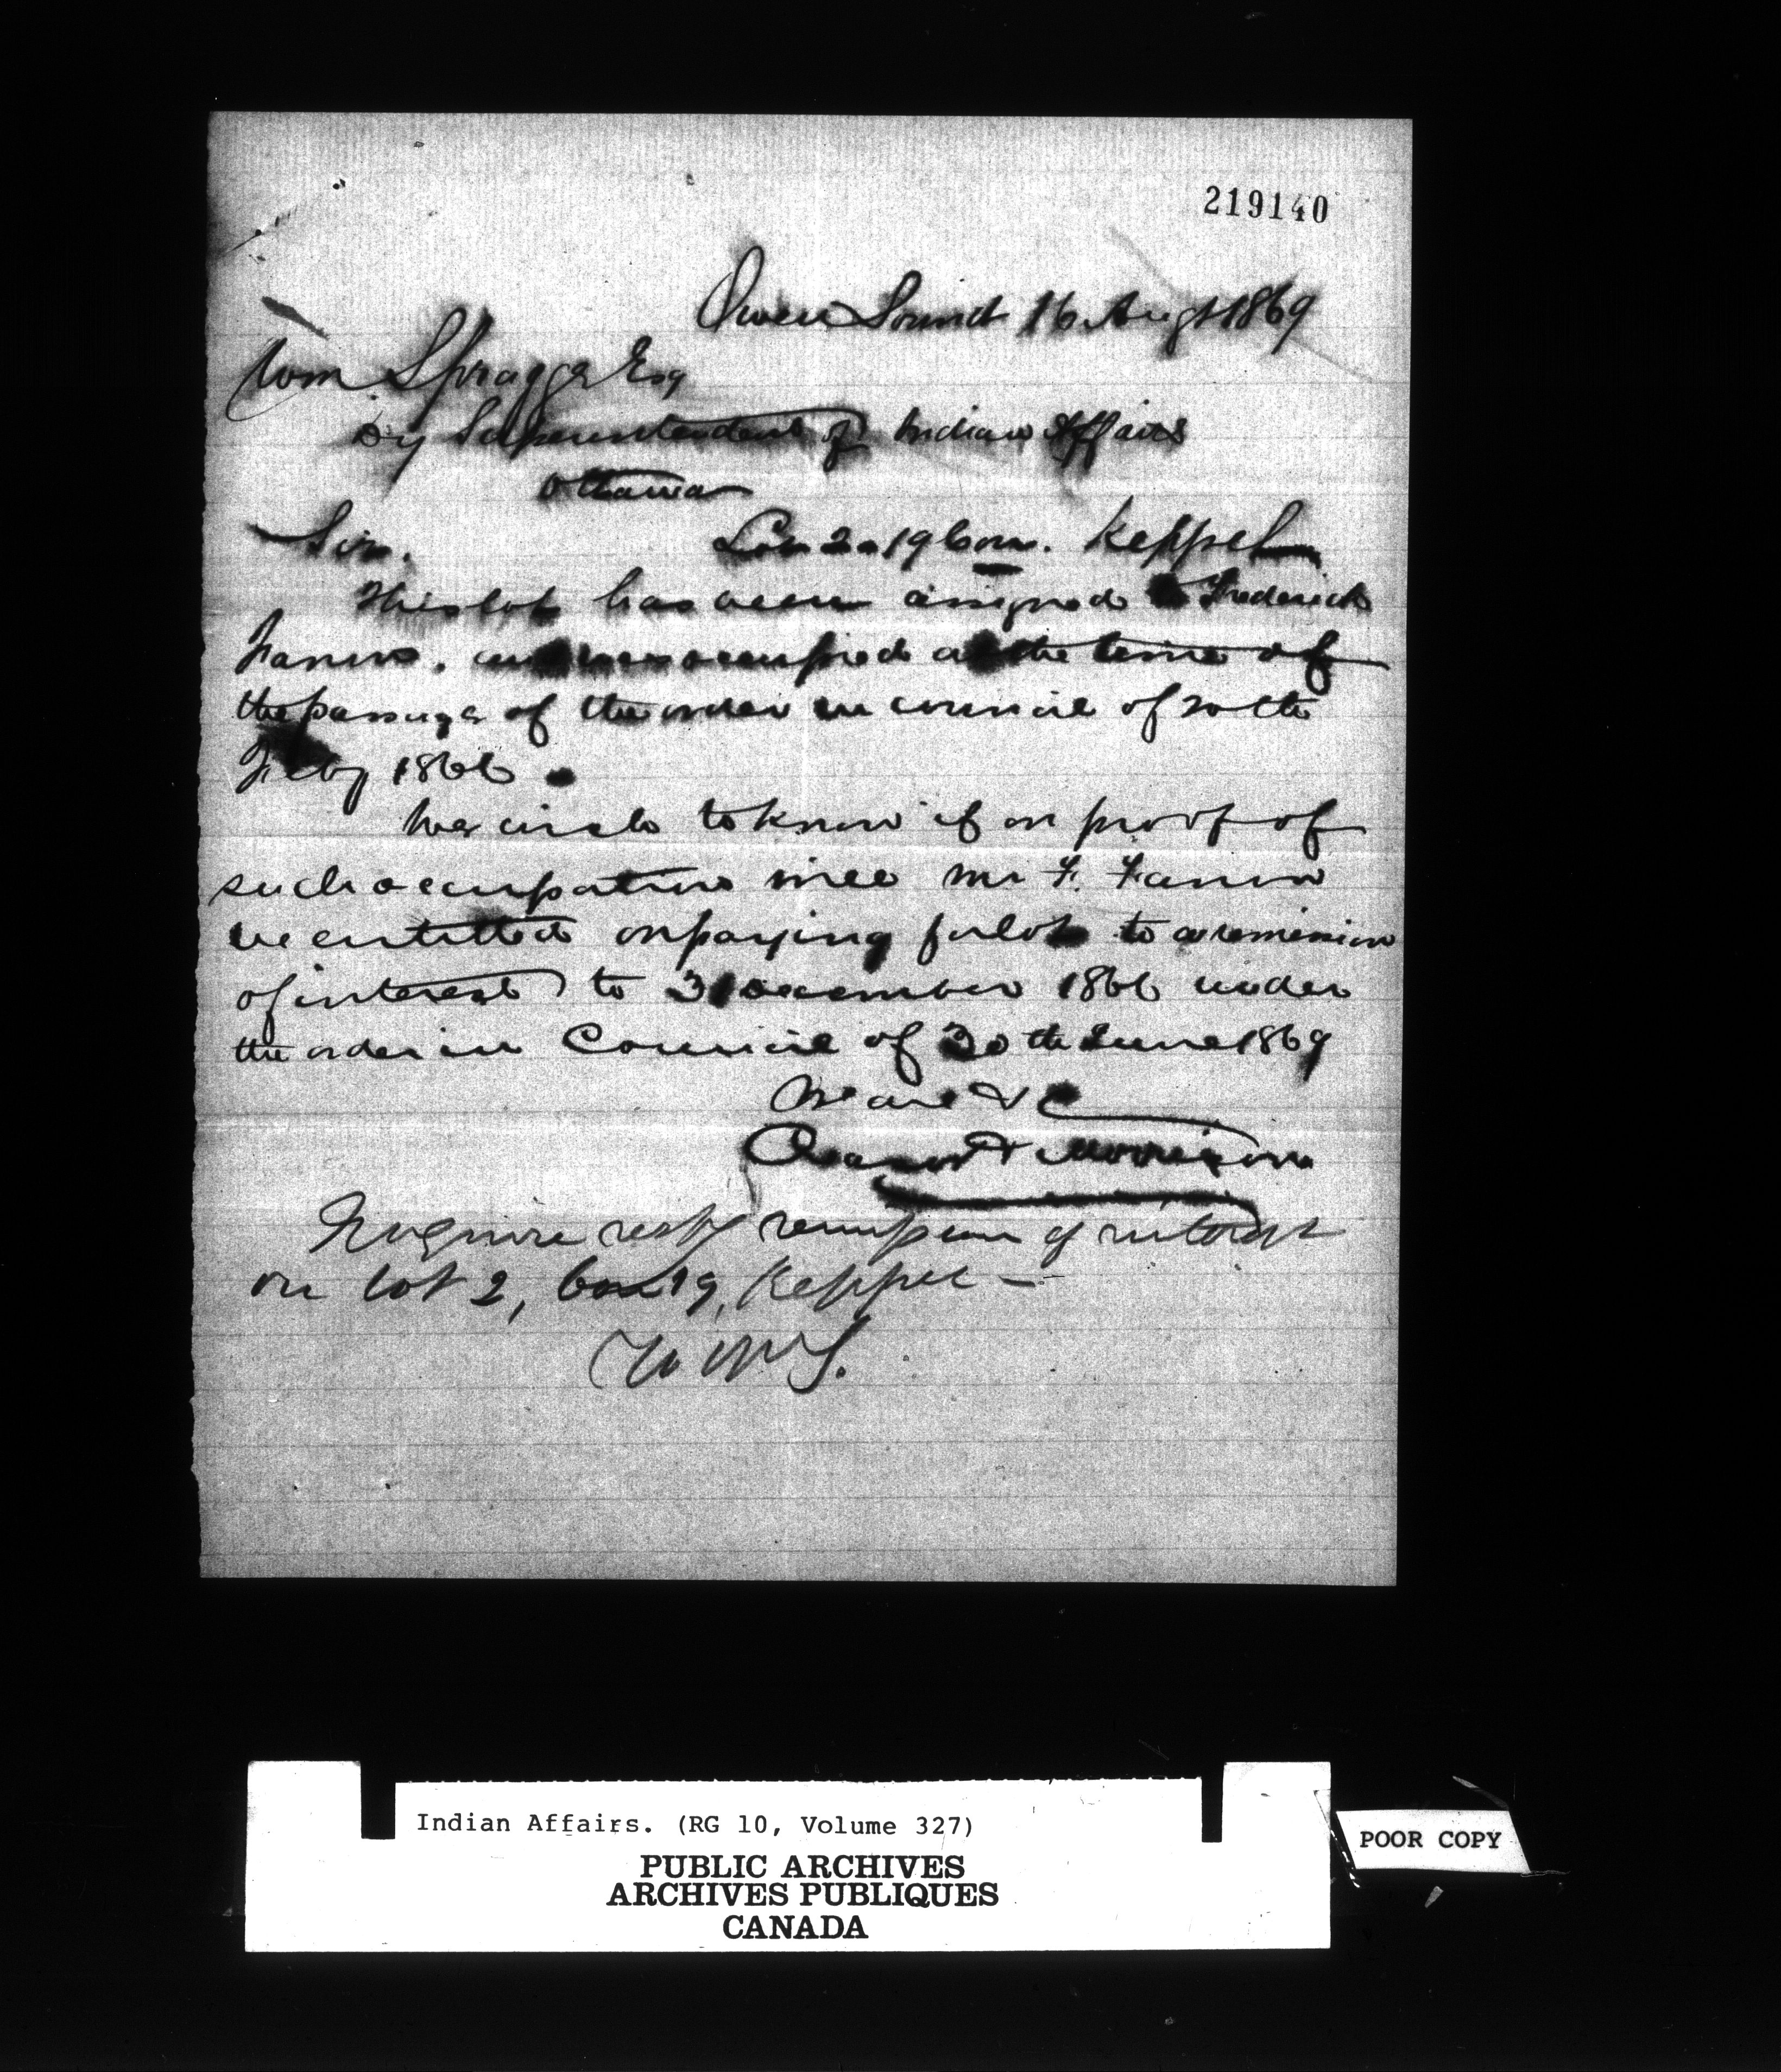 219140
Owen Sound 16 Augt 1869
Wm Spragge Esq
Dy Superintendent of Indian Affairs
Ottawa
Sir. Lot 2. 19 Con. Keppel
This lot has been assigned to Frederick
and was occupied at the time of
the passage of the order in council of
Feby 1866
We wish to know if on proof of
such occupation will Mr F.
be entitled on paying for lot to a remission
of interest to 31 December 1866 under
the order in Council of 30th June 1869
We are &c
Creasor & Morrison
Inquire resptg remission of interest
on lot 2, Con 19, Keppel —
W W S.
Indian Affairs. (RG 10, Volume 327)
PUBLIC ARCHIVES
ARCHIVES PUBLIQUES
CANADA
POOR COPY